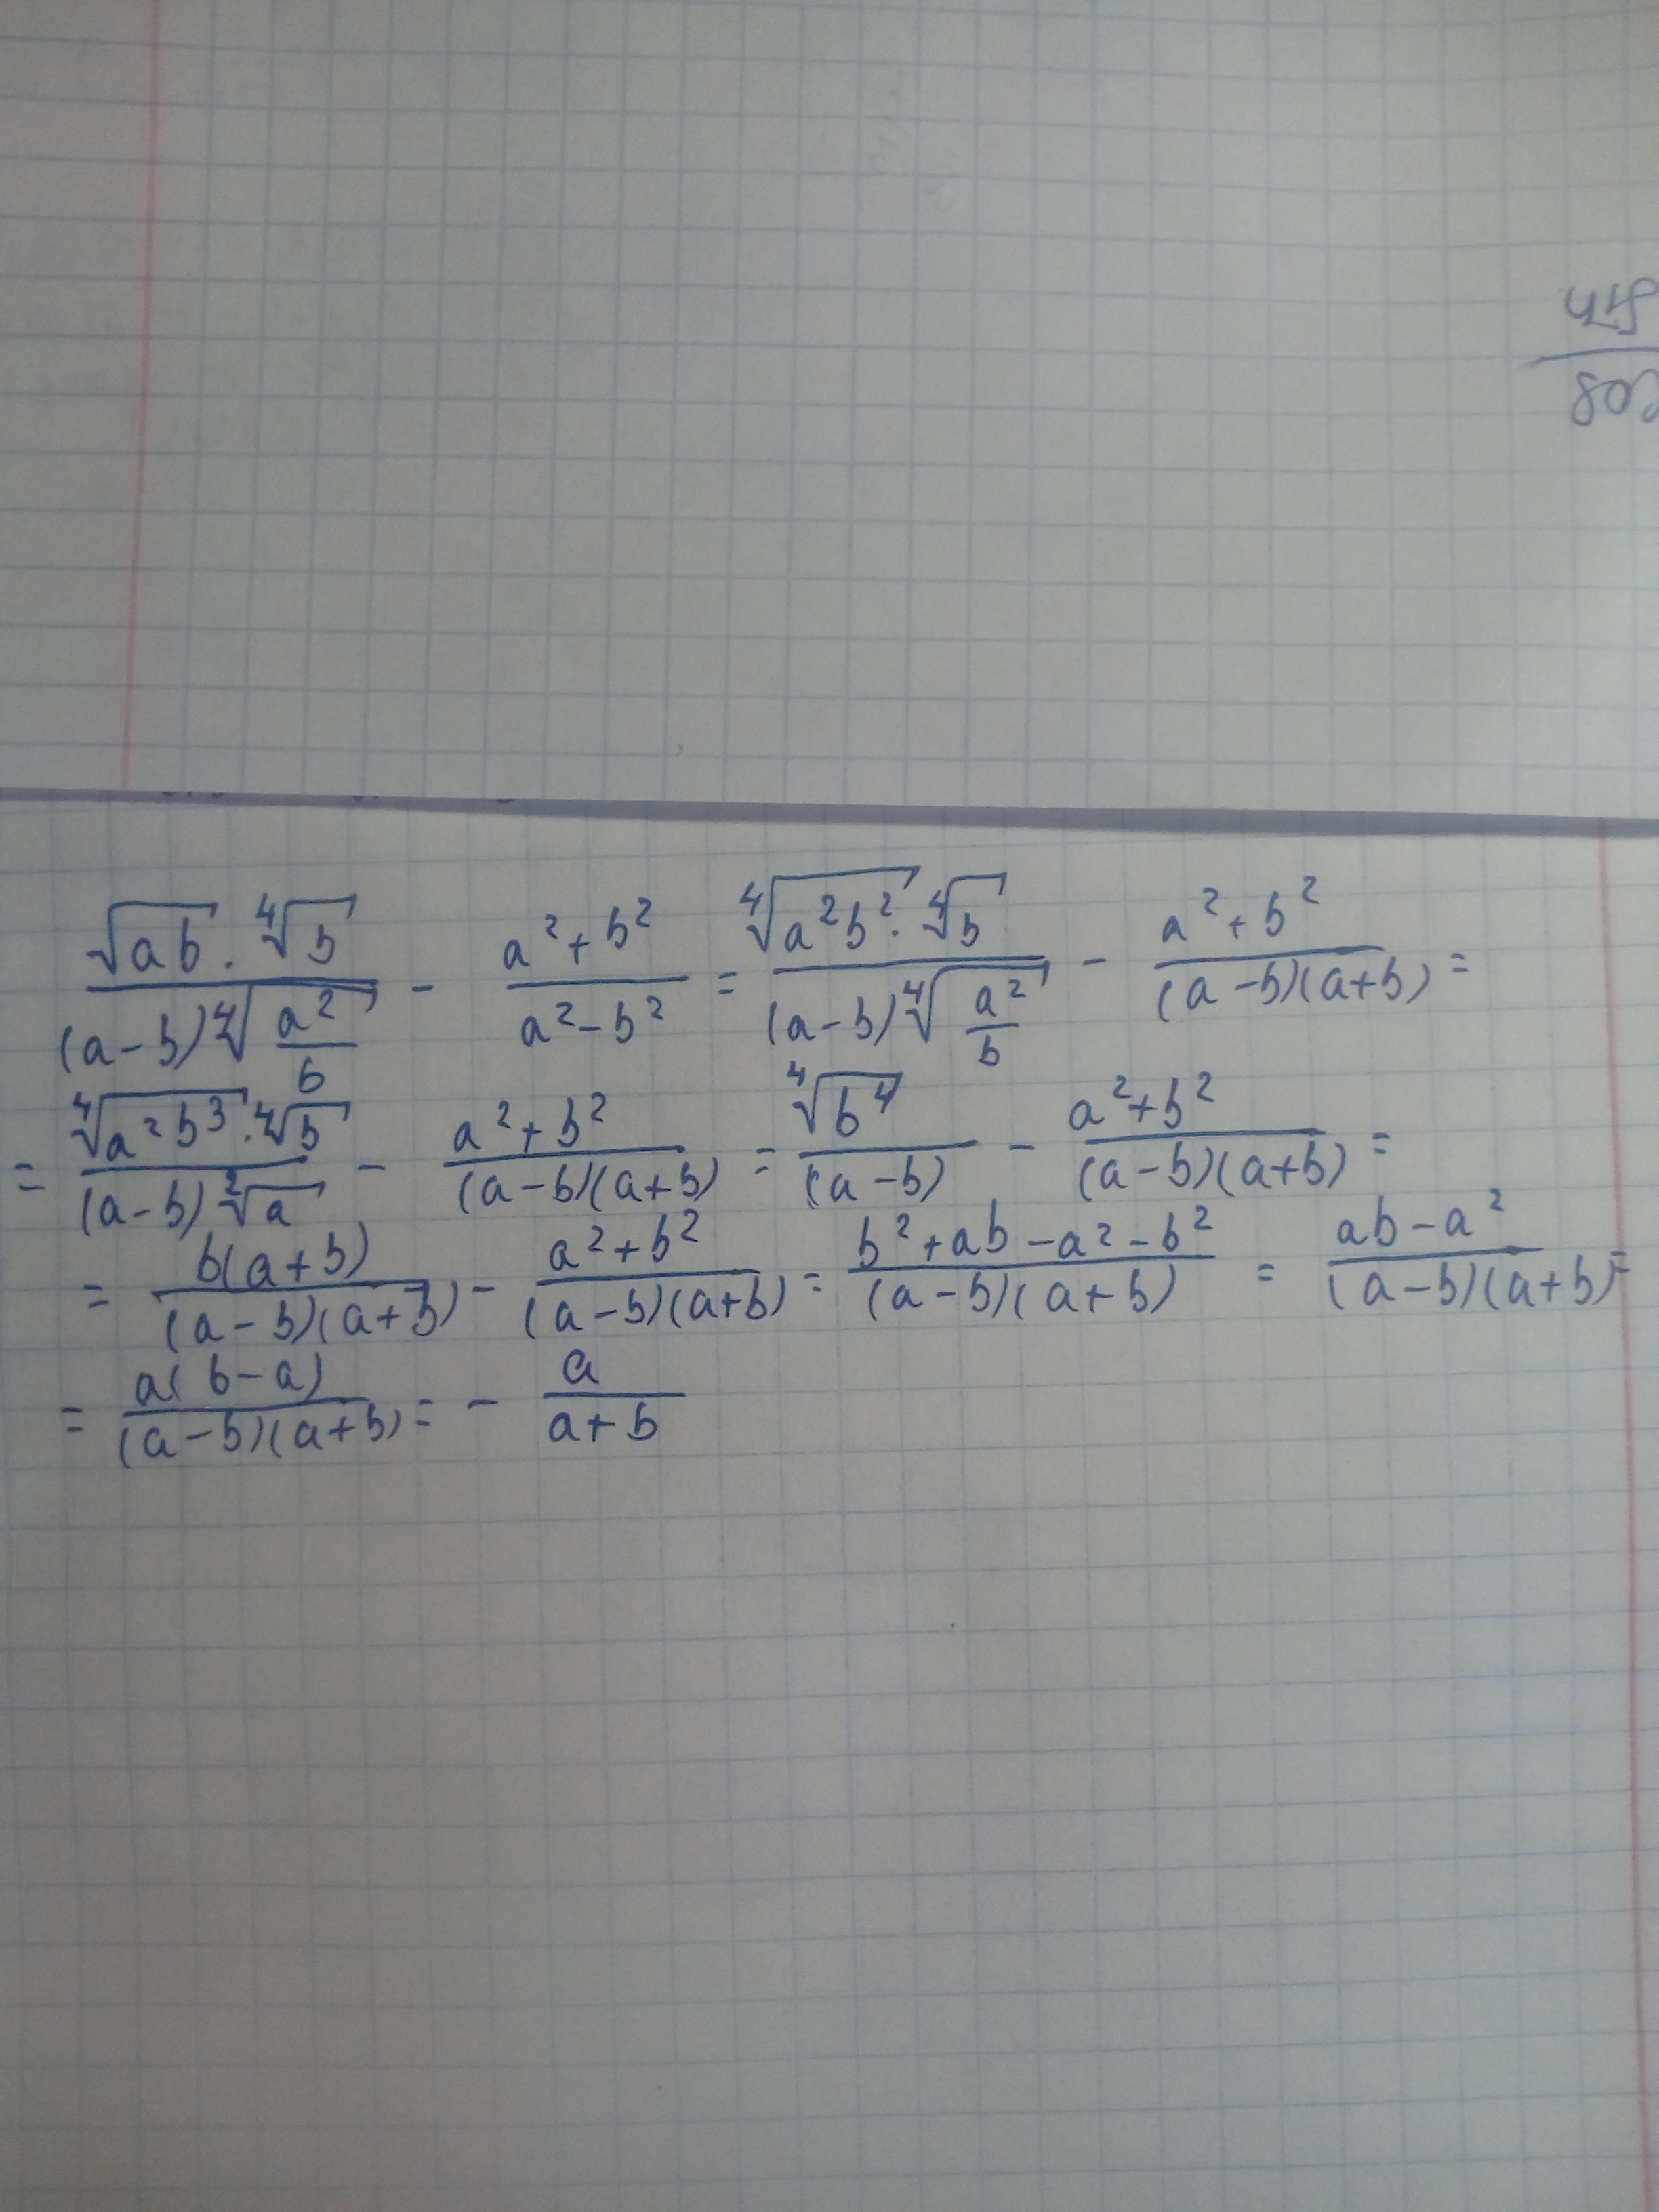 √ab · ⁴√b / (a-b) ⁴√(a²/b) - (a²+b²)/(a²-b²) = ⁴√(a²b²) · ⁴√b / (a-b) ⁴√(a²/b) - (a²+b²)/((a-b)(a+b)) =
= ⁴√(a²b³) · ⁴√b / (a-b) ²√a - (a²+b²)/((a-b)(a+b)) = ⁴√(b⁴)/(a-b) - (a²+b²)/((a-b)(a+b)) =
= b(a+b)/((a-b)(a+b)) - (a²+b²)/((a-b)(a+b)) = (b²+ab-a²-b²)/((a-b)(a+b)) = (ab-a²)/((a-b)(a+b)) =
= a(b-a)/((a-b)(a+b)) = - a/(a+b)